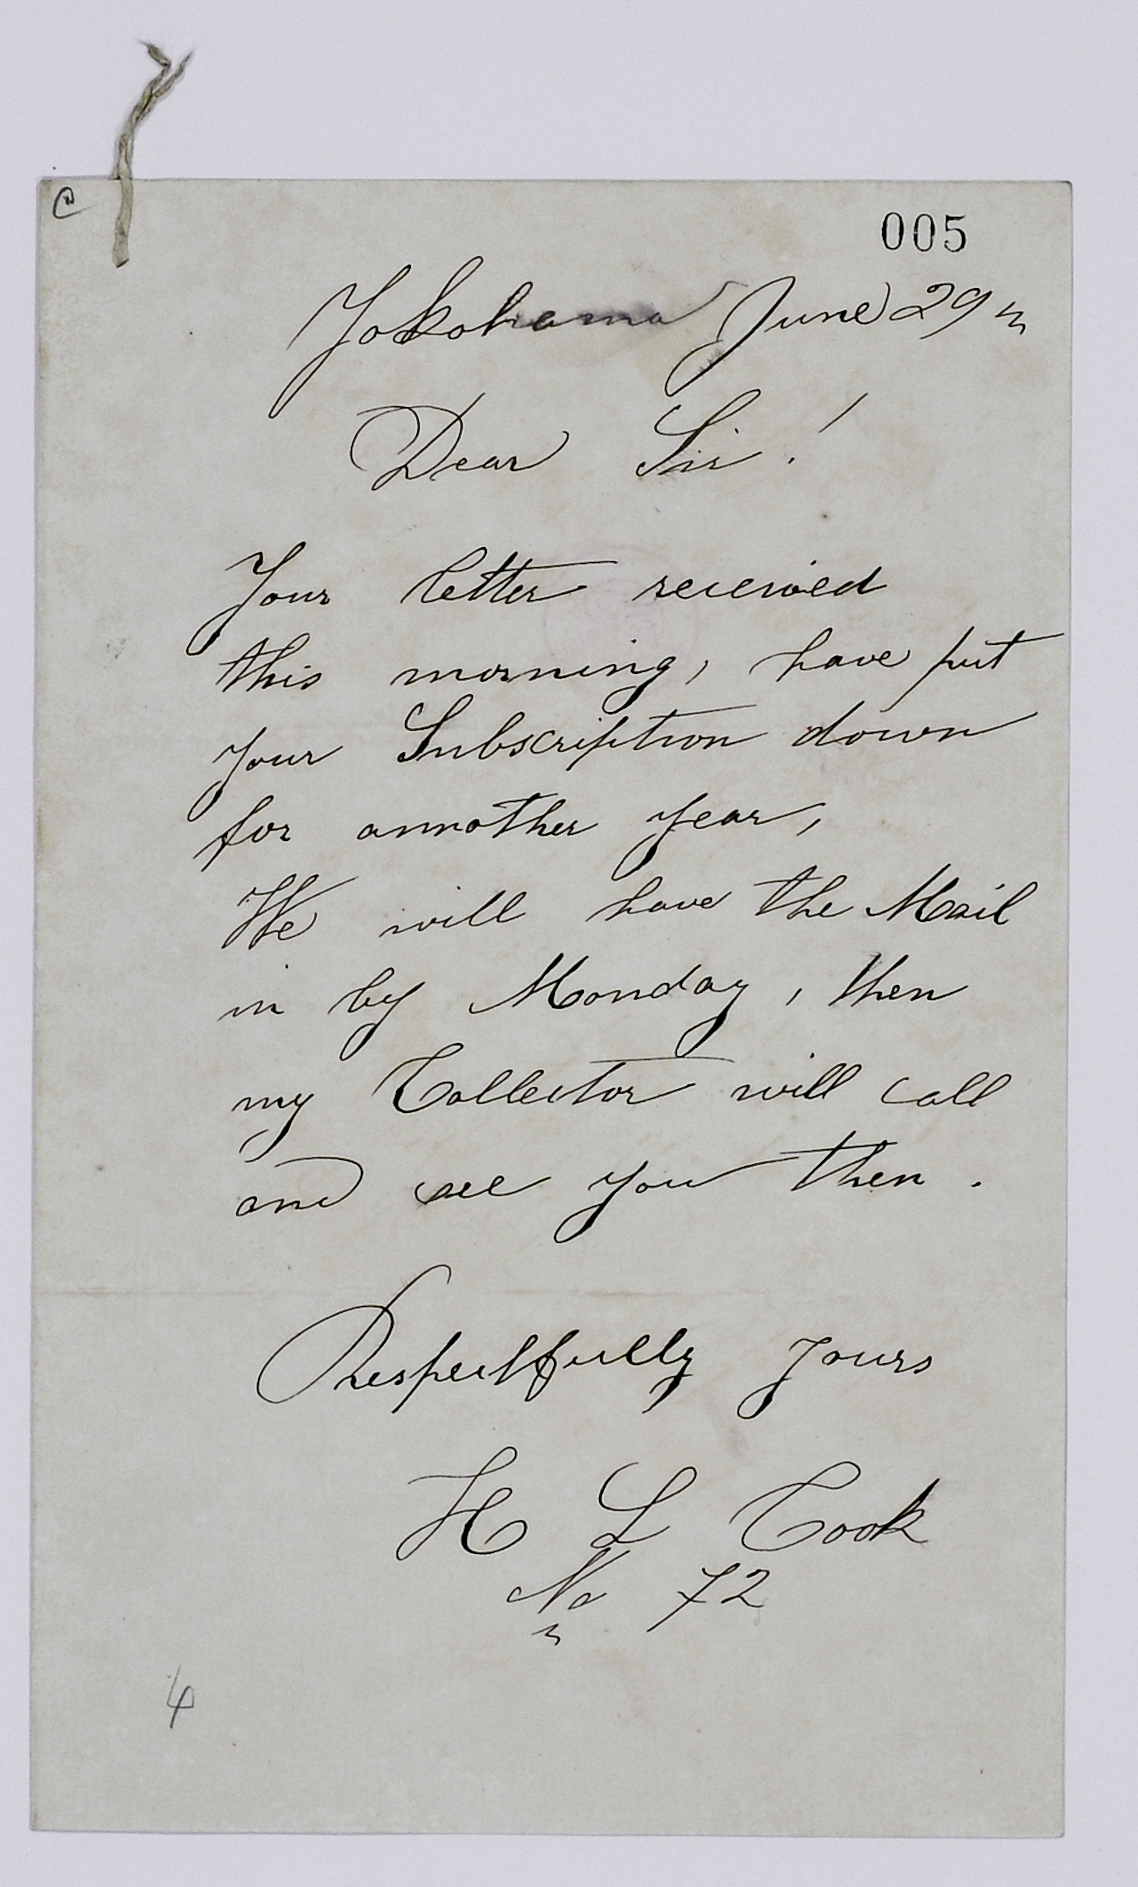 005
Yokohama June 29
Dear Sir!
Your letter received
this morning, have put
your Subscription down
for annother year,
We will have the Mail
in by Monday, then
my Collector will call
and see you then.
Respectfully yours
H L Cook
No 72
4